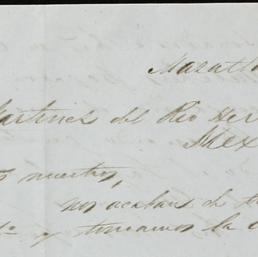 Mazatl
Martinez del Rio Her
Mex
nuestros,
nos acaban de
y tomamos la